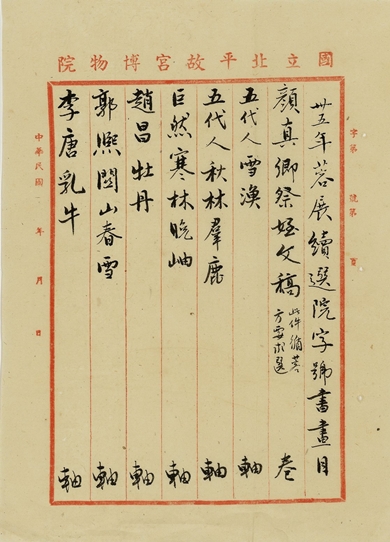 國立北平故宮博物院
字第 號第 頁
卅五年蓉展續選院字號書畫目
顏真卿祭姪文稿 此件循蓉方要求選 卷
五代人雪漁 軸
五代人秋林羣鹿 軸
巨然寒林晚岫 軸
趙昌牡丹 軸
郭熙關山春雪 軸
李唐乳牛 軸
中華民國 年 月 日